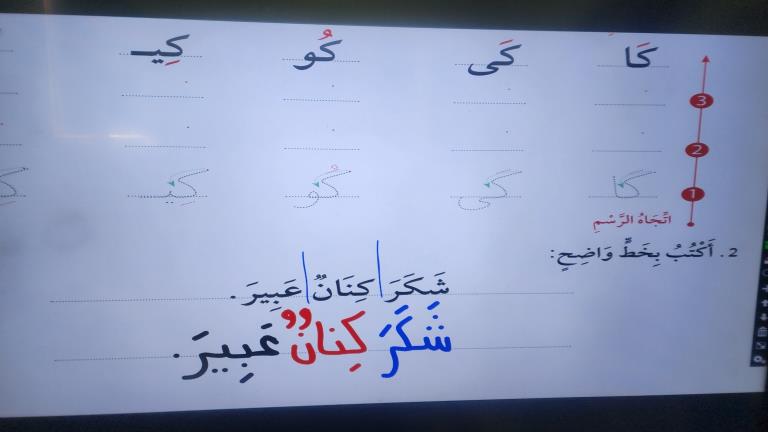 كَا كَى كُو كِيـ
3
2
كَا كَى كُو كِيـ
1
اتِّجَاهُ الرَّسْمِ
2. أَكْتُبُ بِخَطٍّ وَاضِحٍ:
شَكَرَ كِنَانٌ عَبِيرَ.
شَكَرَ كِنانٌ عَبِيرَ.